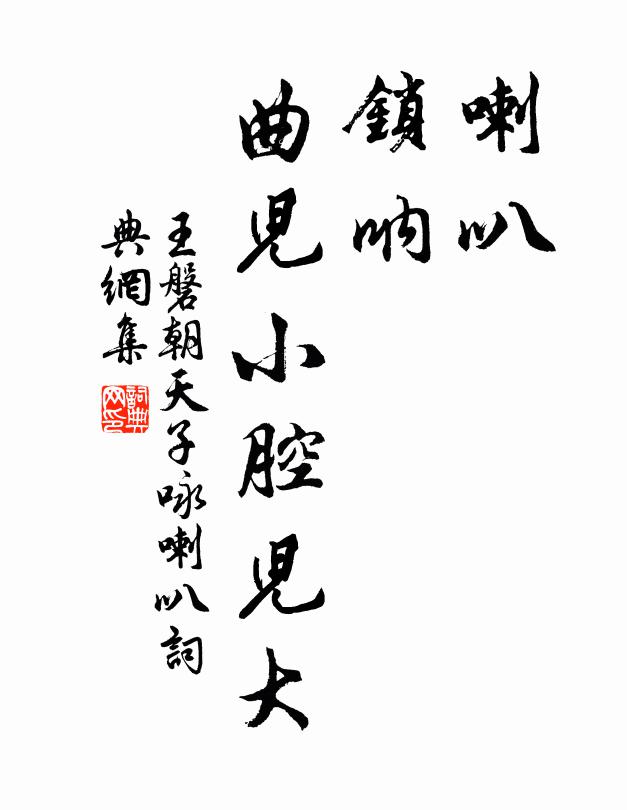 喇叭
鎖呐
曲兒小腔兒大
王磐朝天子咏喇叭詞
典網集
詞典网印